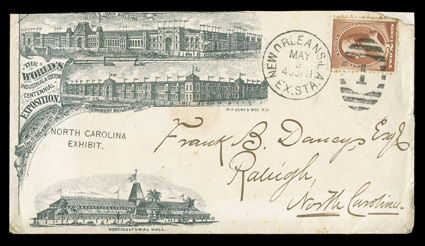 MAIN BUILDING
THE
WORLD'S
INDUSTRIAL & COTTON
CENTENNIAL
EXPOSITION.
GOVERNMENT BUILDING
NEW ORLEANS, LA
MAY
EX. STA.
NORTH CAROLINA
EXHIBIT.
Frank B. Dancy Esq
Raleigh,
North Carolina.
HORTICULTURAL HALL.